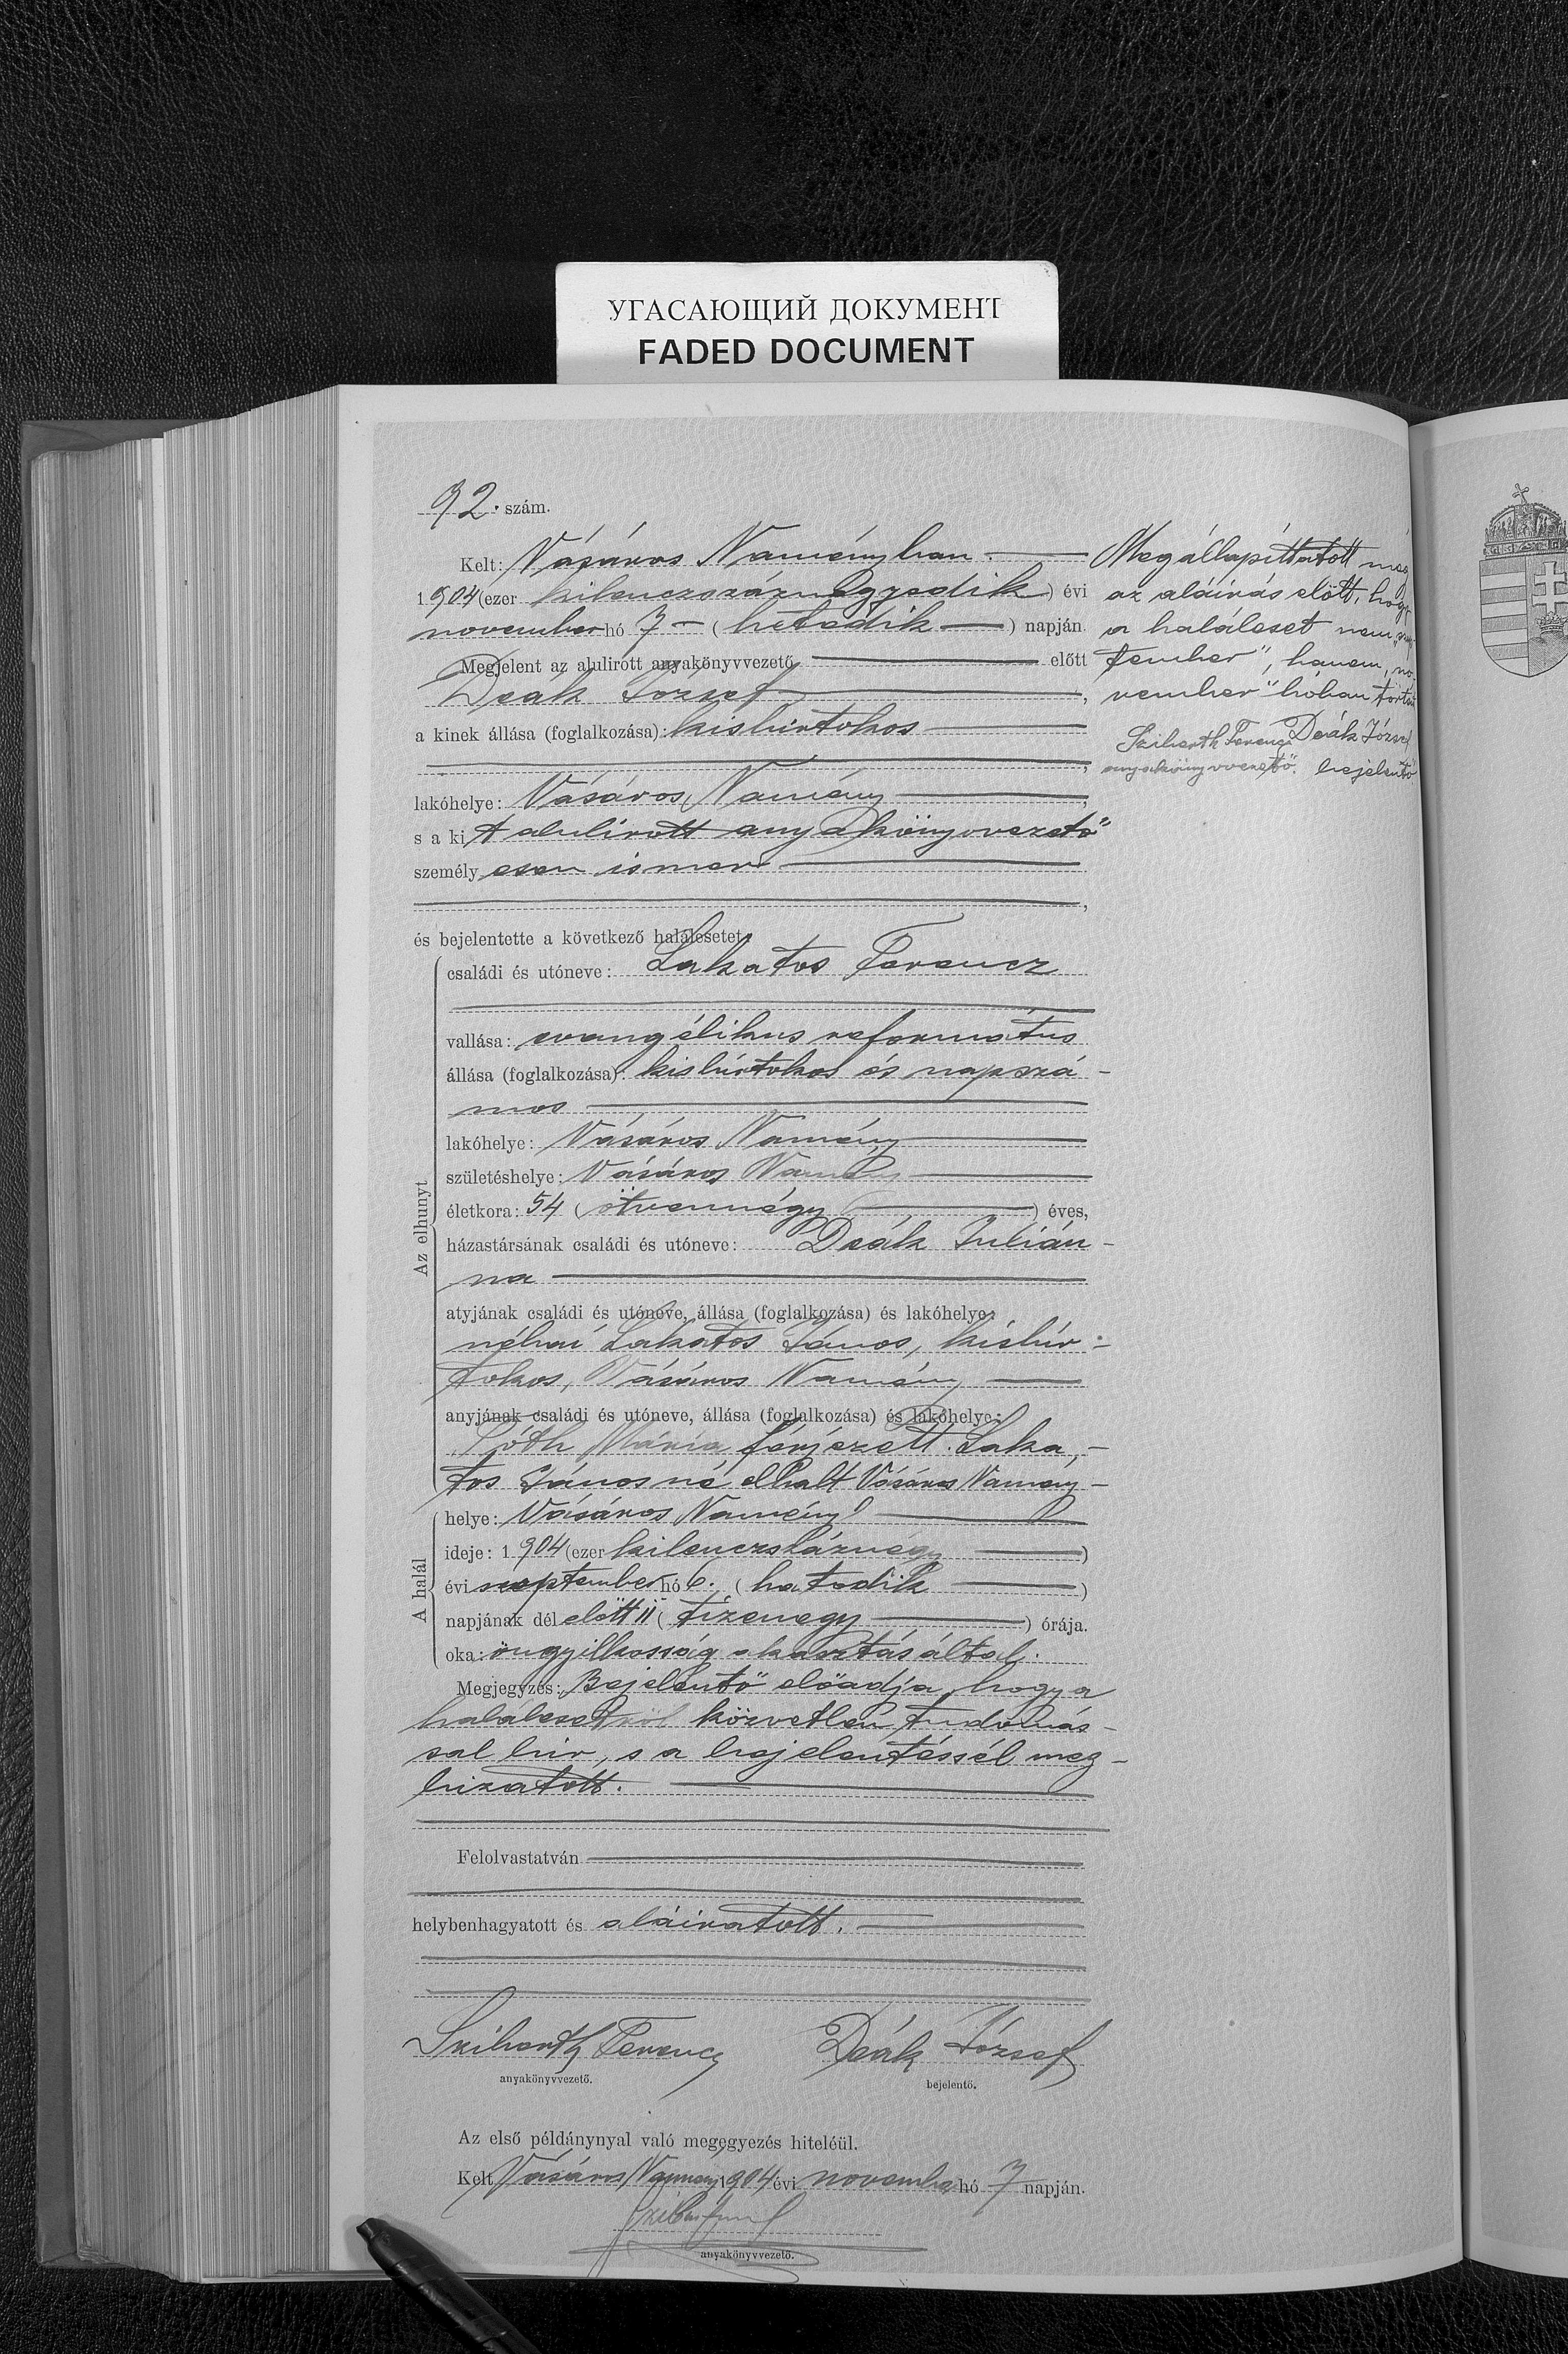 УГАСАЮЩИЙ ДОКУМЕНТ
FADED DOCUMENT
92. szám.
Kelt: Vásáros Naményban
1904 (ezer kilenczszáznegyedik) évi
november hó 7 (hetedik) napján.
Megjelent az alulirott anyakönyvvezető előtt
Deák József,
a kinek állása (foglalkozása): kisbirtokos
,
lakóhelye: Vásáros Namény,
s a kit alulirott anyakönyvvezető
személyesen ismer
,
és bejelentette a következő halálesetet:
Az elhunyt
családi és utóneve: Lakatos Ferencz
vallása: evangélikus református
állása (foglalkozása): kisbirtokos és napszá-
mos
lakóhelye: Vásáros Namény
születéshelye: Vásáros Namény
életkora: 54 (ötvennégy) éves,
házastársának családi és utóneve: Deák Julián-
na
atyjának családi és utóneve, állása (foglalkozása) és lakóhelye:
néhai Lakatos János, kisbir-
tokos, Vásáros Namény
anyjának családi és utóneve, állása (foglalkozása) és lakóhelye:
Tóth Mária férjezett Laka-
tos Jánosné elhalt Vásáros Namény-
A halál
helye: Vásáros Namény
ideje: 1904 (ezer kilenczszáznégy)
évi szeptember hó 6. (hatodik)
napjának dél előtt 11 (tizenegy) órája.
oka: öngyilkosság akasztás által.
Megjegyzés: Bejelentő előadja, hogy a
halálesetről közvetlen tudomás-
sal bir, s a bejelentéssel meg-
bizatott.
Felolvastatván
helybenhagyatott és aláiratott.
Sziberth Ferencz Deák József
anyakönyvvezető. bejelentő.
Az első példánynyal való megegyezés hiteléül.
Kelt Vásáros Namény 1904 évi november hó 7 napján.
anyakönyvvezető.
Megállapittatott még
az aláirás előtt, hogy
a haláleset nem „szep-
tember", hanem „no-
vember" hóban történt
Sziberth Ferencz Deák József
anyakönyvvezető. bejelentő